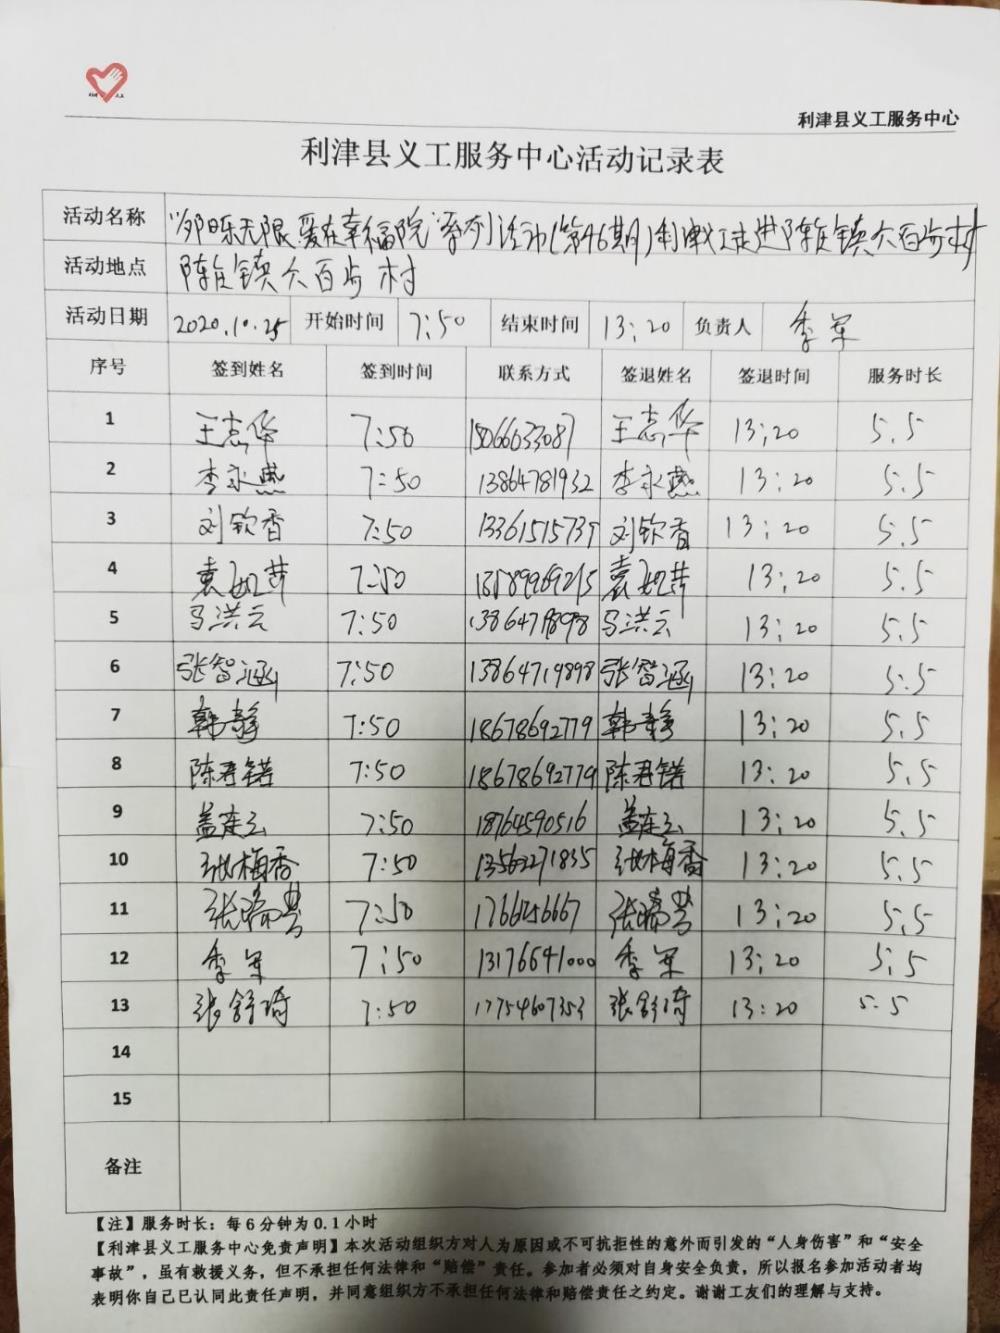 利津县义工服务中心
利津县义工服务中心活动记录表
活动名称 "夕阳乐无限 爱在幸福院"系列活动(第46期)利津义工走进陈庄镇大百步村
活动地点 陈庄镇大百步村
活动日期 2020.10.25 开始时间 7:50 结束时间 13:20 负责人 李军
序号 签到姓名 签到时间 联系方式 签退姓名 签退时间 服务时长
1 王志华 7:50 15066633087 王志华 13:20 5.5
2 李永燕 7:50 13864781932 李永燕 13:20 5.5
3 刘钦香 7:50 刘钦香 13:20 5.5
4 7:50 13589969215 13:20 5.5
5 马洪云 7:50 马洪云 13:20 5.5
6 张智涵 7:50 13864719898 张智涵 13:20 5.5
7 韩静 7:50 18678692779 韩静 13:20 5.5
8 陈君锘 7:50 18678692779 陈君锘 13:20 5.5
9 盖连云 7:50 18764590516 盖连云 13:20 5.5
10 张梅香 7:50 13563271835 张梅香 13:20 5.5
11 7:50 13:20 5.5
12 李军 7:50 13176641000 李军 13:20 5.5
13 张舒琦 7:50 17754607353 张舒琦 13:20 5.5
14
15
备注
【注】服务时长：每6分钟为0.1小时
【利津县义工服务中心免责声明】本次活动组织方对人为原因或不可抗拒性的意外而引发的“人身伤害”和“安全
事故”，虽有救援义务，但不承担任何法律和“赔偿”责任。参加者必须对自身安全负责，所以报名参加活动者均
表明你自己已认同此责任声明，并同意组织方不承担任何法律和赔偿责任之约定。谢谢工友们的理解与支持。